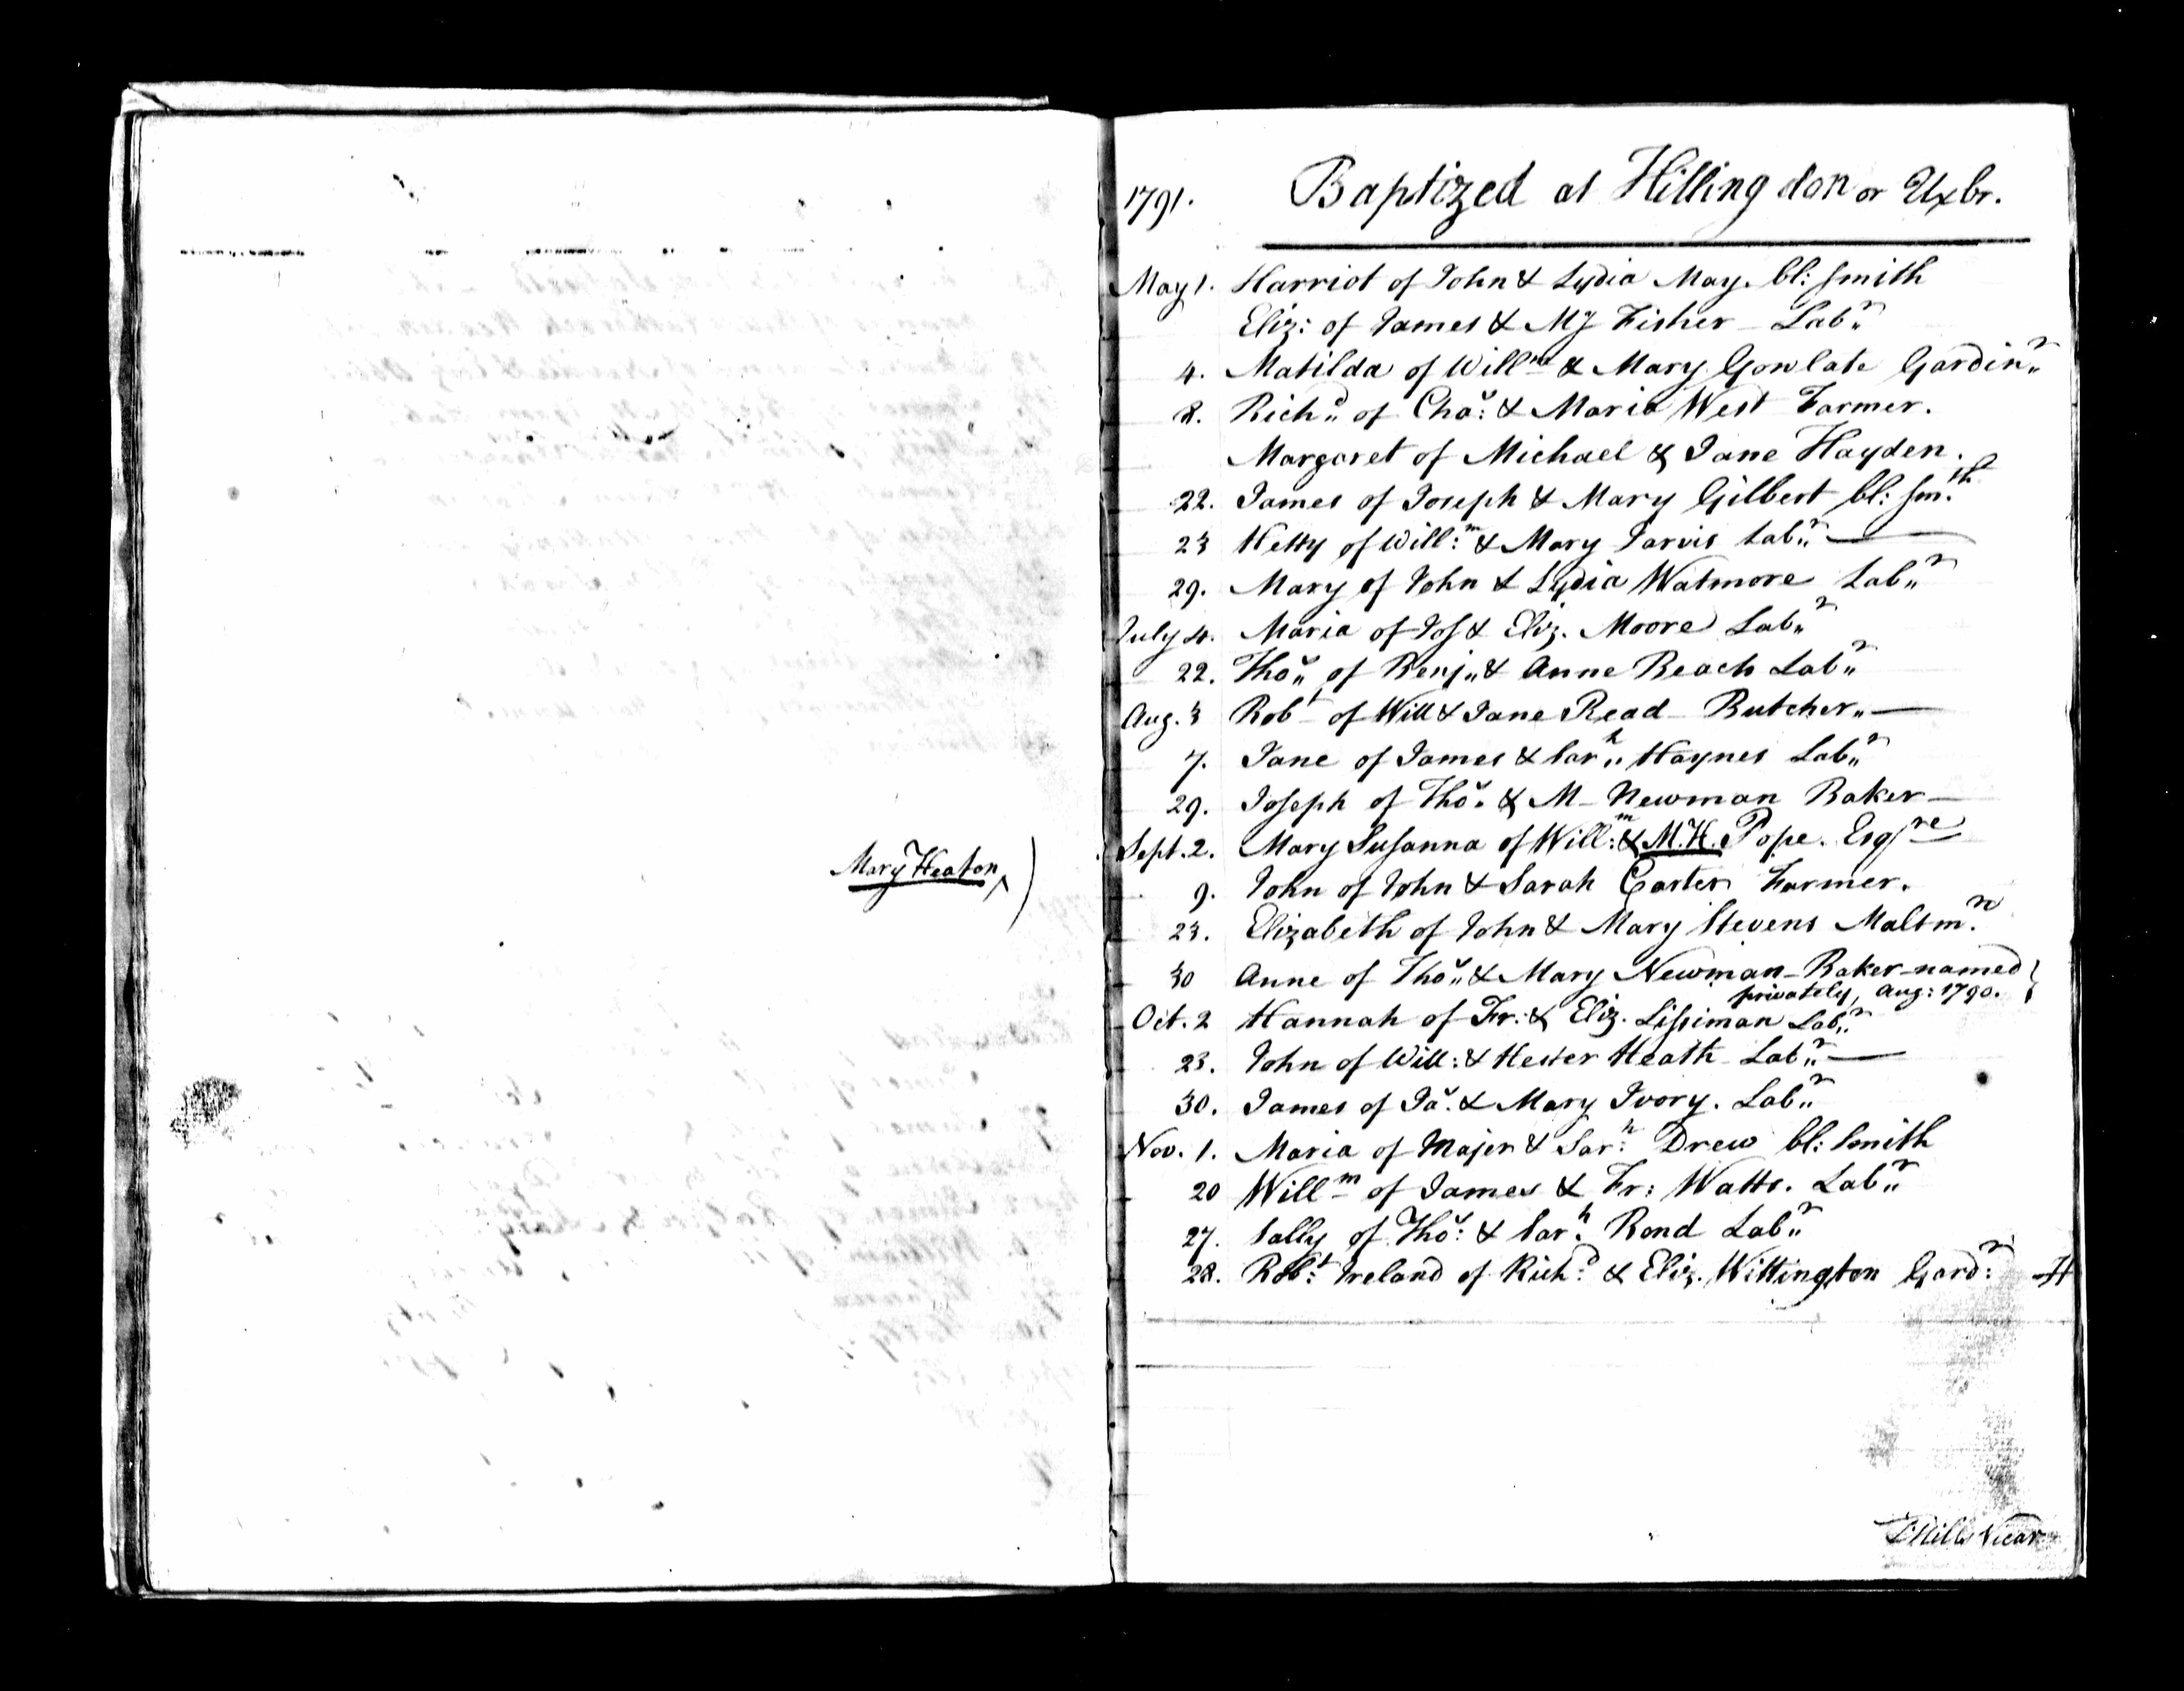 Mary Heaton ^ )
1791. Baptized at Hillingdon or Uxbr.
May 1. Harriot of John & Lydia May. bl: smith
Eliz: of James & My Fisher - Labr
4. Matilda of Willm & Mary Gowlate Gardinr
8. Richd of Chas: & Maria West Farmer.
Margaret of Michael & Jane Hayden.
22. James of Joseph & Mary Gilbert bl: smth
23 Hetty of Will:m & Mary Jarvis Labr
29. Mary of John & Lydia Watmore Labr
July 4. Maria of Jos & Eliz. Moore Labr
22. Thos of Benj. & Anne Beach Labr
Aug. 3 Robt of Will & Jane Read - Butcher
7. Jane of James & Sarh Haynes Labr
29. Joseph of Thos. & M - Newman Baker -
Sept. 2. Mary Susanna of Will:m & M.H. Pope. Esqre
9. John of John & Sarah Carter Farmer.
23. Elizabeth of John & Mary Stevens Maltm.n
30 Anne of Thos & Mary Newman - Baker - named }
privately, Aug: 1790.
Oct. 2 Hannah of Fr: & Eliz. Lissiman Labr
23. John of Will: & Hester Heath - Labr
30. James of Jas. & Mary Ivory. Labr
Nov. 1. Maria of Majer & Sar:h Drew bl: smith
20 Willm of James & Fr: Watts. Labr
27. Sally of Thos: & Sar:h Rond Labr
28. Rob:t Ireland of Rich:d & Eliz. Wittington Gard:r - H
Mills Vicar